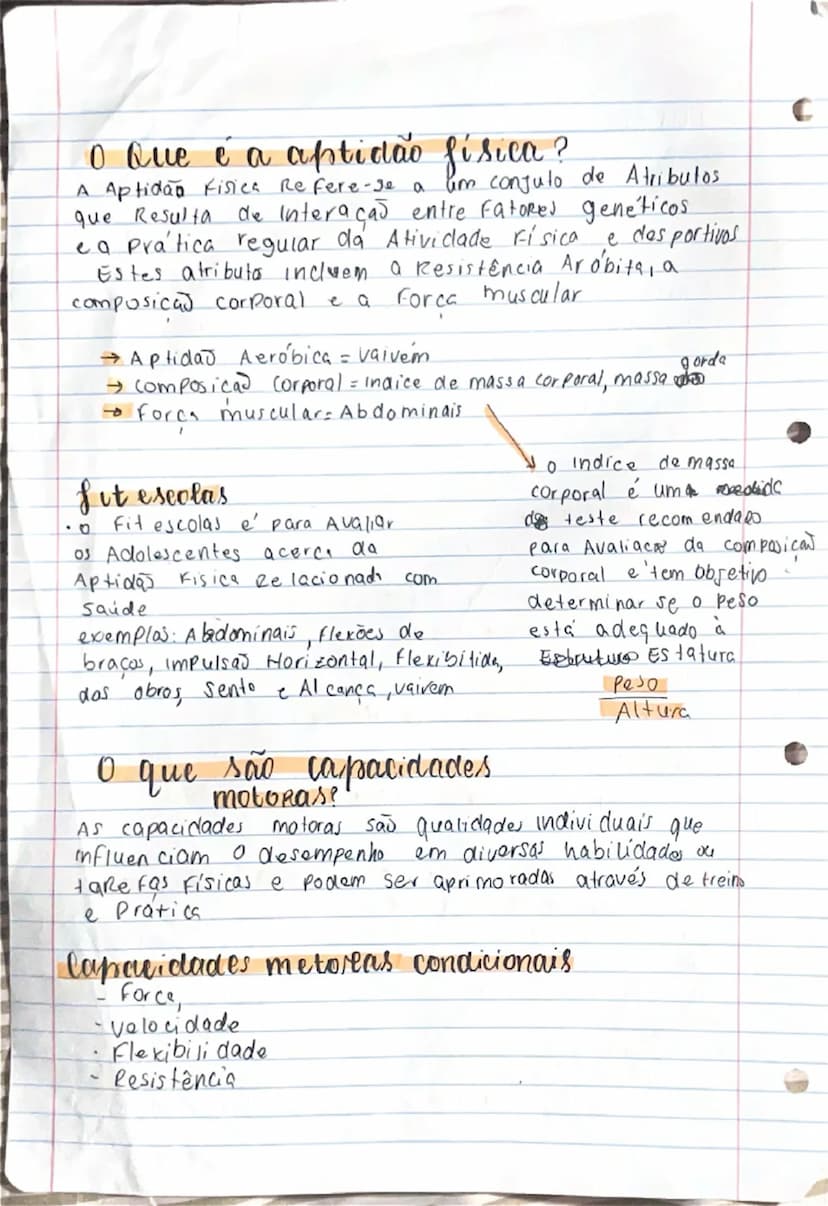 O Que é a aptidão física?
A Aptidão Física Refere-se a um conjulo de Atribulos
que Resulta de interação entre Fatores genéticos
e a prática regular da Atividade Física e desportivos
Estes atributo incluem a Resistência Aróbita, a
composição corporal e a Força muscular
→ Aptidão Aeróbica = Vaivém
→ composição corporal = indice de massa corporal, massa gorda
→ Força muscular = Abdominais
fit escolas
. o Fit escolas é para Avaliar
os Adolescentes acerca da
Aptidão Física Relacionada com
saúde
exemplos: Abdominais, flexões de
braços, impulsão Horizontal, flexibilida,
dos obros, sento e Alcança, vaivem
o indice de massa
corporal é uma
de teste recomendado
para Avaliacao da composição
corporal e tem objetivo
determinar se o peso
está adequado à
Estatura
Peso
Altura
O que são capacidades
motoras?
As capacidades motoras são qualidades individuais que
influenciam o desempenho em diversas habilidades ou
tarefas físicas e podem ser aprimoradas através de treino
e Prática
Capacidades metoreas condicionais
- Force,
- velocidade
- Flexibilidade
- Resistência